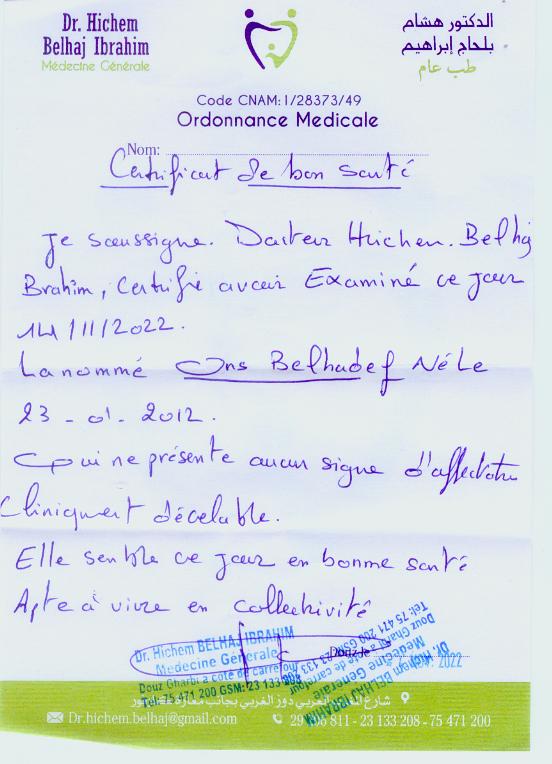 Dr. Hichem
Belhaj Ibrahim
Médecine Générale
الدكتور هشام
بلحاج إبراهيم
طب عام
Code CNAM: 1/28373/49
Ordonnance Medicale
Nom:
Certificat de bon santé
Je soussigne. Docteur Hichem. Belhaj
Brahim, Certifie avoir Examiné ce jour
14/11/2022.
La nommé Ons Belhadef Né Le
23 - 01 - 2012.
Qui ne présente aucun signe d'affection
Cliniquement décelable.
Elle semble ce jour en bonne santé
Apte à vivre en collectivité
Dr. Hichem BELHAJ IBRAHIM
Medecine Génerale
Douz Gharbi a coté de carrefour
Tél: 75 471 200 GSM: 23 133
Douz le
2022
Dr Hichem BELHAJ IBRAHIM
Medecine Génerale
Douz Gharbi a coté de carrefour
Tél: 75 471 200 GSM: 23 133
شارع الغربي دوز الغربي بجانب مغازة
Dr.hichem.belhaj@gmail.com
29 811 - 23 133 208 - 75 471 200